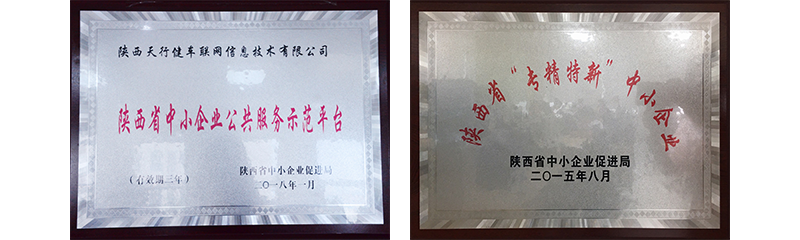 陕西天行健车联网信息技术有限公司
陕西省中小企业公共服务示范平台
(有效期三年)
陕西省中小企业促进局
二〇一八年一月
陕西省“专精特新”中小企业
陕西省中小企业促进局
二〇一五年八月